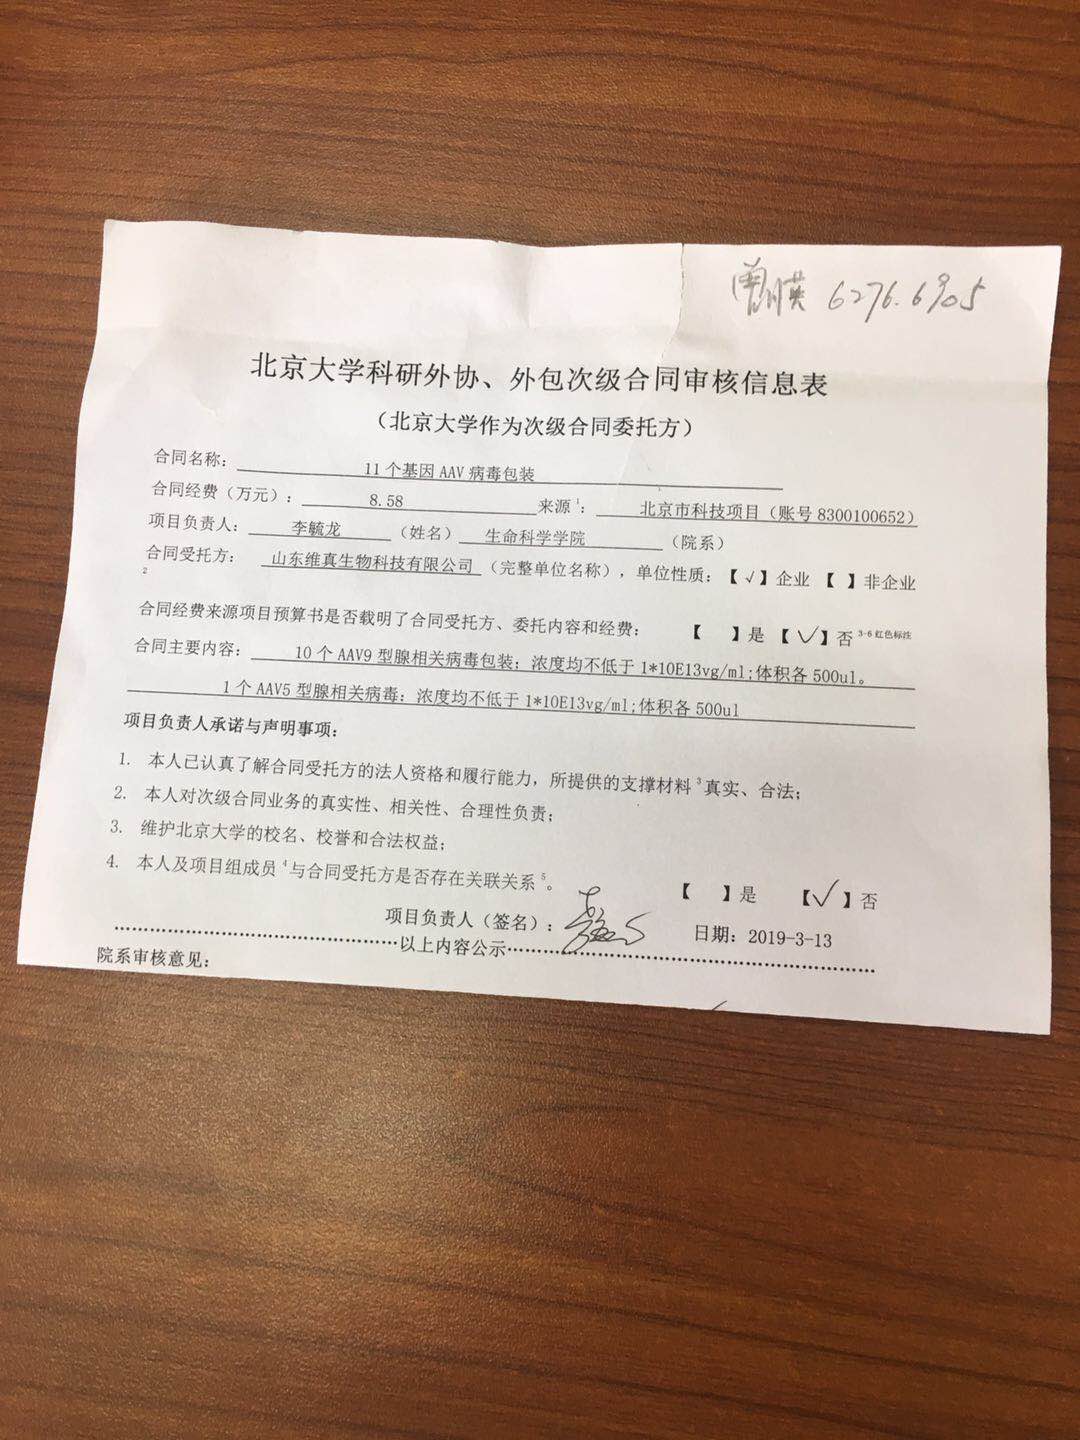 6276.6905
北京大学科研外协、外包次级合同审核信息表
（北京大学作为次级合同委托方）
合同名称： 11个基因AAV病毒包装
合同经费（万元）： 8.58 来源1： 北京市科技项目（账号8300100652）
项目负责人： 李毓龙 （姓名） 生命科学学院 （院系）
合同受托方： 山东维真生物科技有限公司 （完整单位名称），单位性质：【√】企业 【 】非企业
2
合同经费来源项目预算书是否载明了合同受托方、委托内容和经费： 【 】是 【√】否 3-6红色标注
合同主要内容： 10个AAV9型腺相关病毒包装；浓度均不低于1*10E13vg/ml;体积各500ul。
1个AAV5型腺相关病毒：浓度均不低于1*10E13vg/ml;体积各500ul
项目负责人承诺与声明事项：
1. 本人已认真了解合同受托方的法人资格和履行能力，所提供的支撑材料3真实、合法；
2. 本人对次级合同业务的真实性、相关性、合理性负责；
3. 维护北京大学的校名、校誉和合法权益；
4. 本人及项目组成员4与合同受托方是否存在关联关系5。 【 】是 【√】否
项目负责人（签名）： 日期：2019-3-13
……………………………………以上内容公示……………………………………
院系审核意见：